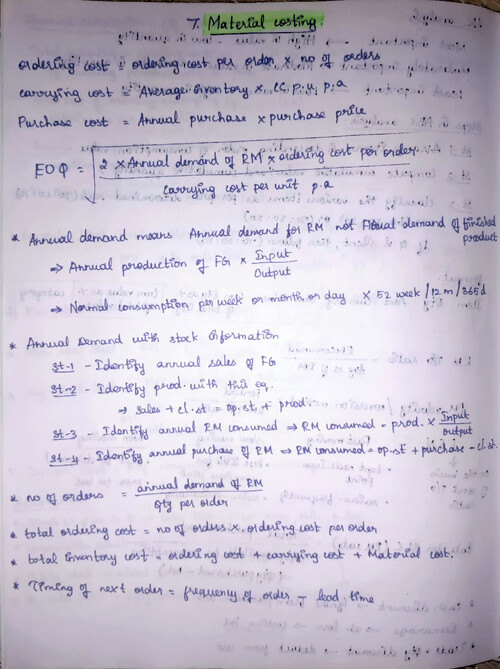 7. Material costing.
ordering cost = ordering cost per order × no of orders
carrying cost = Average inventory × CC p.u p.a
Purchase cost = Annual purchase × purchase price
EOQ = √ 2 × Annual demand of RM × ordering cost per order
carrying cost per unit p.a
* Annual demand means Annual demand for RM not Annual demand of finished
product
⇒ Annual production of FG × Input
Output
⇒ Normal consumption per week or month or day × 52 week / 12 m / 365 d
* Annual Demand with stock information
St-1 - Identify annual sales of FG
St-2 - Identify prod. with this eq.
→ Sales + cl.st = op.st + prod.
St-3 - Identify annual RM consumed ⇒ RM consumed = prod. × Input
output
St-4 - Identify annual purchase of RM ⇒ RM consumed = op.st + purchase - cl.st.
* no of orders = annual demand of RM
Qty per order
* total ordering cost = no of orders × ordering cost per order
* total inventory cost = ordering cost + carrying cost + Material cost.
* Timing of next order = frequency of order - lead time